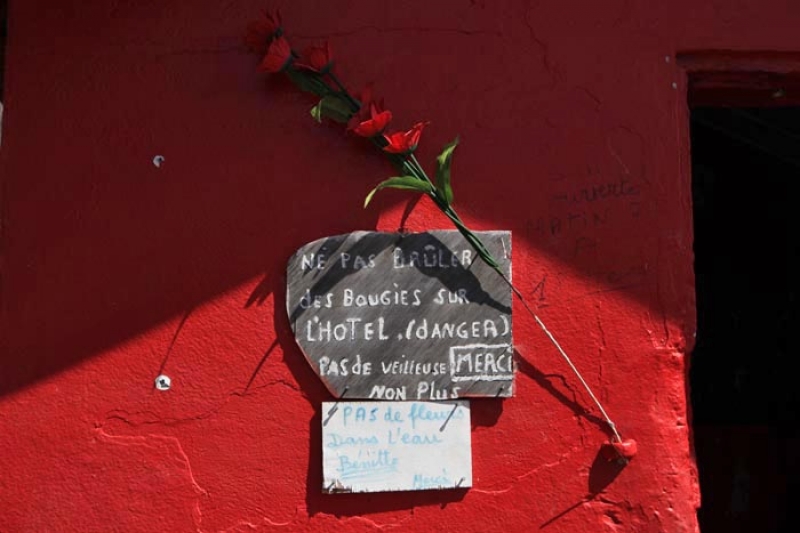 NE PAS BRÛLER
des BOUGIES SUR
L'HOTEL. (dANGER)
PAS de VEILLEUSE MERCI
NON PLUS
PAS de fleurs
Dans l'eau
Bénitte
Merci
MATIN
1